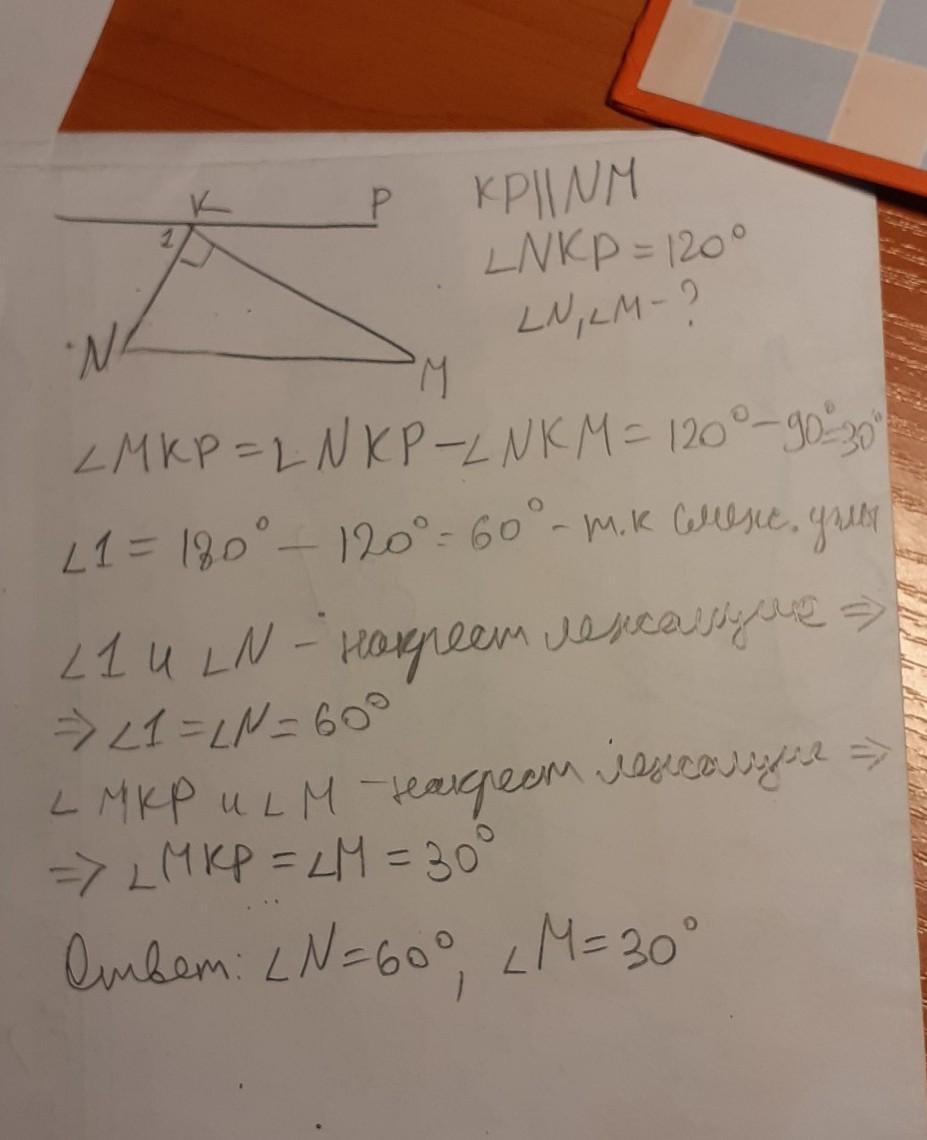 K P
1
N
M
KP||NM
∠NKP=120°
∠N,∠M-?
∠MKP=∠NKP-∠NKM=120°-90°=30°
∠1=180°-120°=60°-т.к смеж. углы
∠1 и ∠N - накрест лежащие ⇒
⇒∠1=∠N=60°
∠MKP и ∠M - накрест лежащие ⇒
⇒∠MKP=∠M=30°
Ответ: ∠N=60°, ∠M=30°